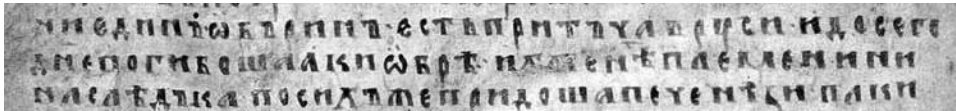 ни единъ ѡбъринъ· естъ притъча в руси· и до сего
дне погибоша аки ѡбрѣ· ихже нѣ племени ни
наслѣдъка по сихъ же придоша печенѣзи паки